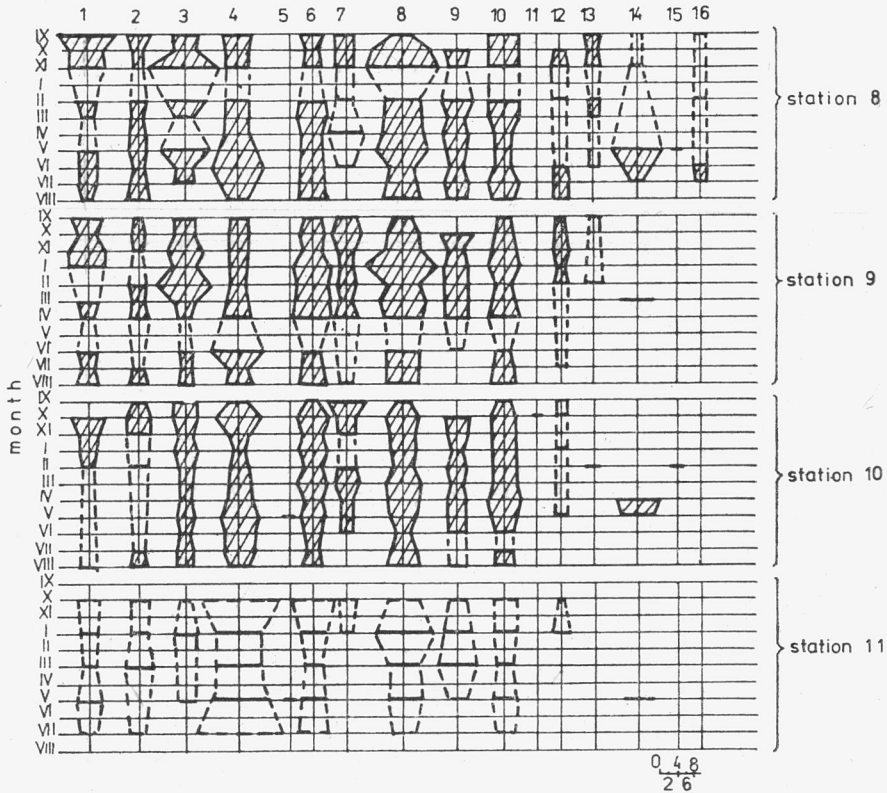 1 2 3 4 5 6 7 8 9 10 11 12 13 14 15 16
IX
X
XI
I
II
III
IV
V
VI
VII
VIII
station 8
IX
X
XI
I
II
III
IV
V
VI
VII
VIII
station 9
month
IX
X
XI
I
II
III
IV
V
VI
VII
VIII
station 10
IX
X
XI
I
II
III
IV
V
VI
VII
VIII
station 11
0 4 8
2 6